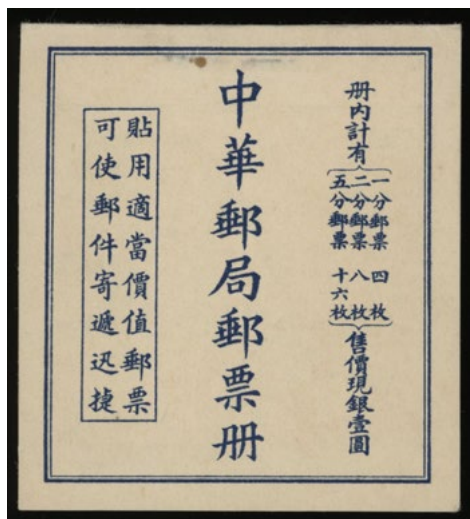 册內計有
一分郵票 四枚
二分郵票 八枚
五分郵票 十六枚
售價現銀壹圓
中華郵局郵票册
貼用適當價值郵票
可使郵件寄遞迅捷